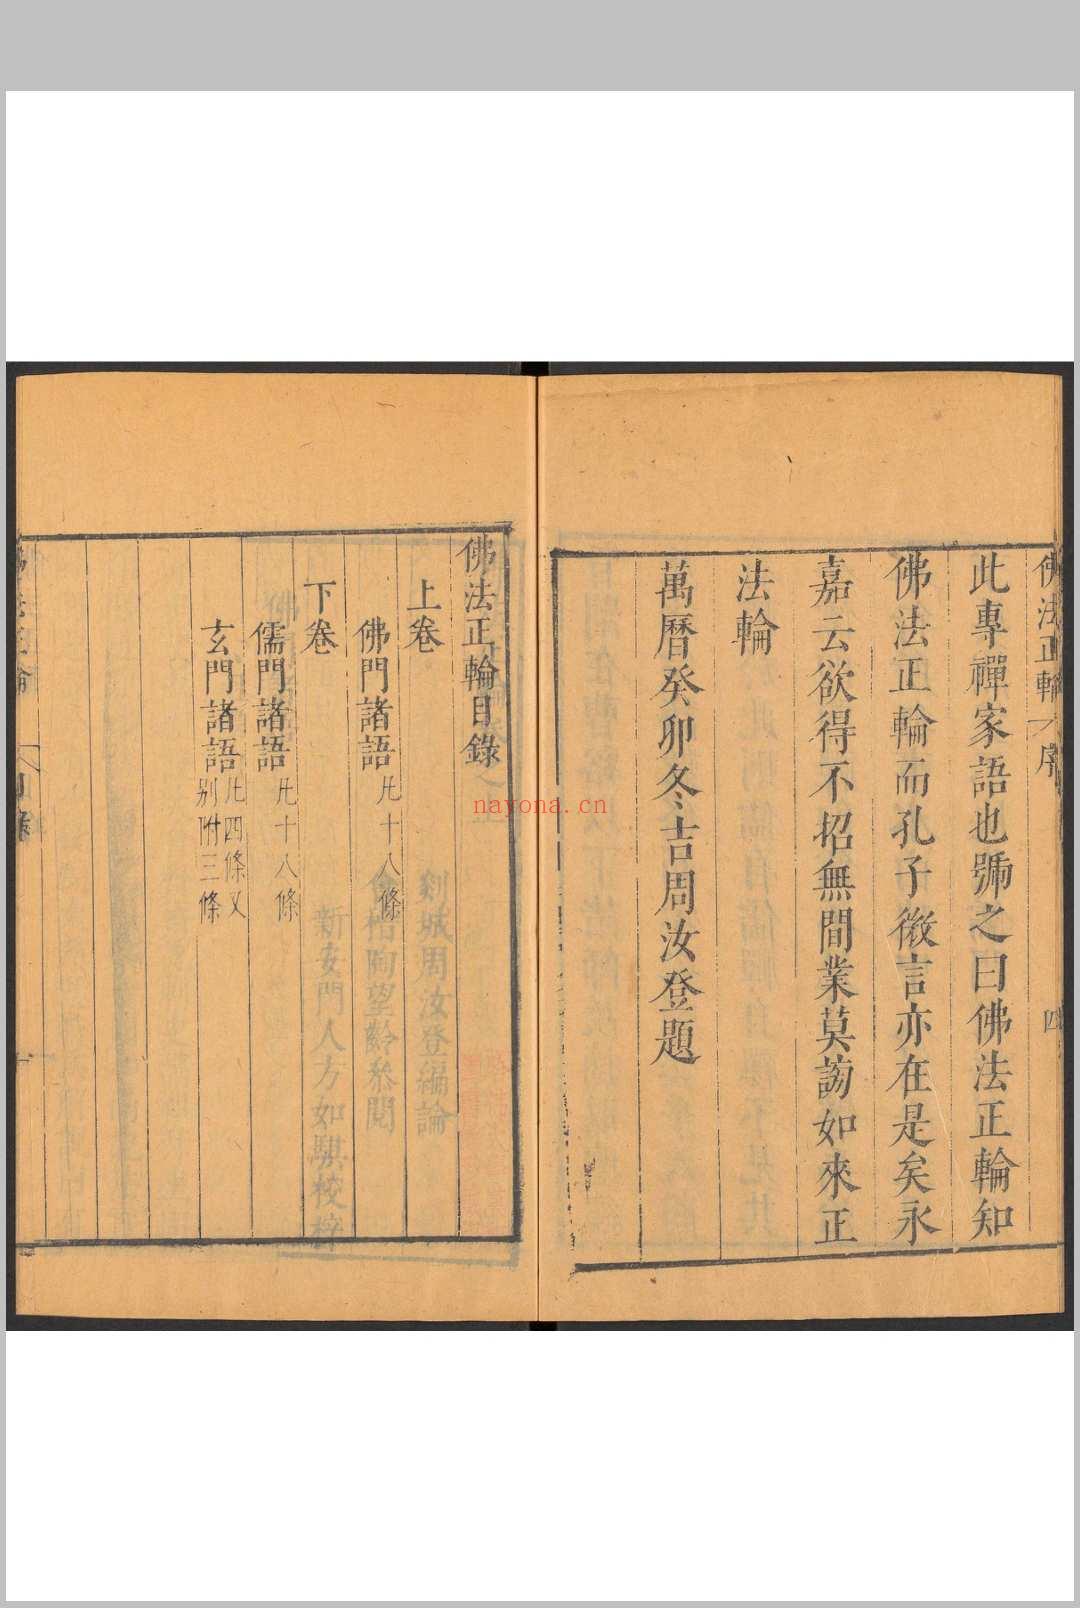 佛法正輪 序 四
此專禪家語也號之曰佛法正輪知
佛法正輪而孔子微言亦在是矣永
嘉云欲得不招無間業莫謗如來正
法輪
萬曆癸卯冬吉周汝登題
佛法正輪目錄
上卷
佛門諸語 凡十八條
下卷
儒門諸語 凡十八條
玄門諸語 凡四條又
別附三條
剡城周汝登編論
會稽陶望齡參閱
新安門人方如騏校梓
nayona.cn